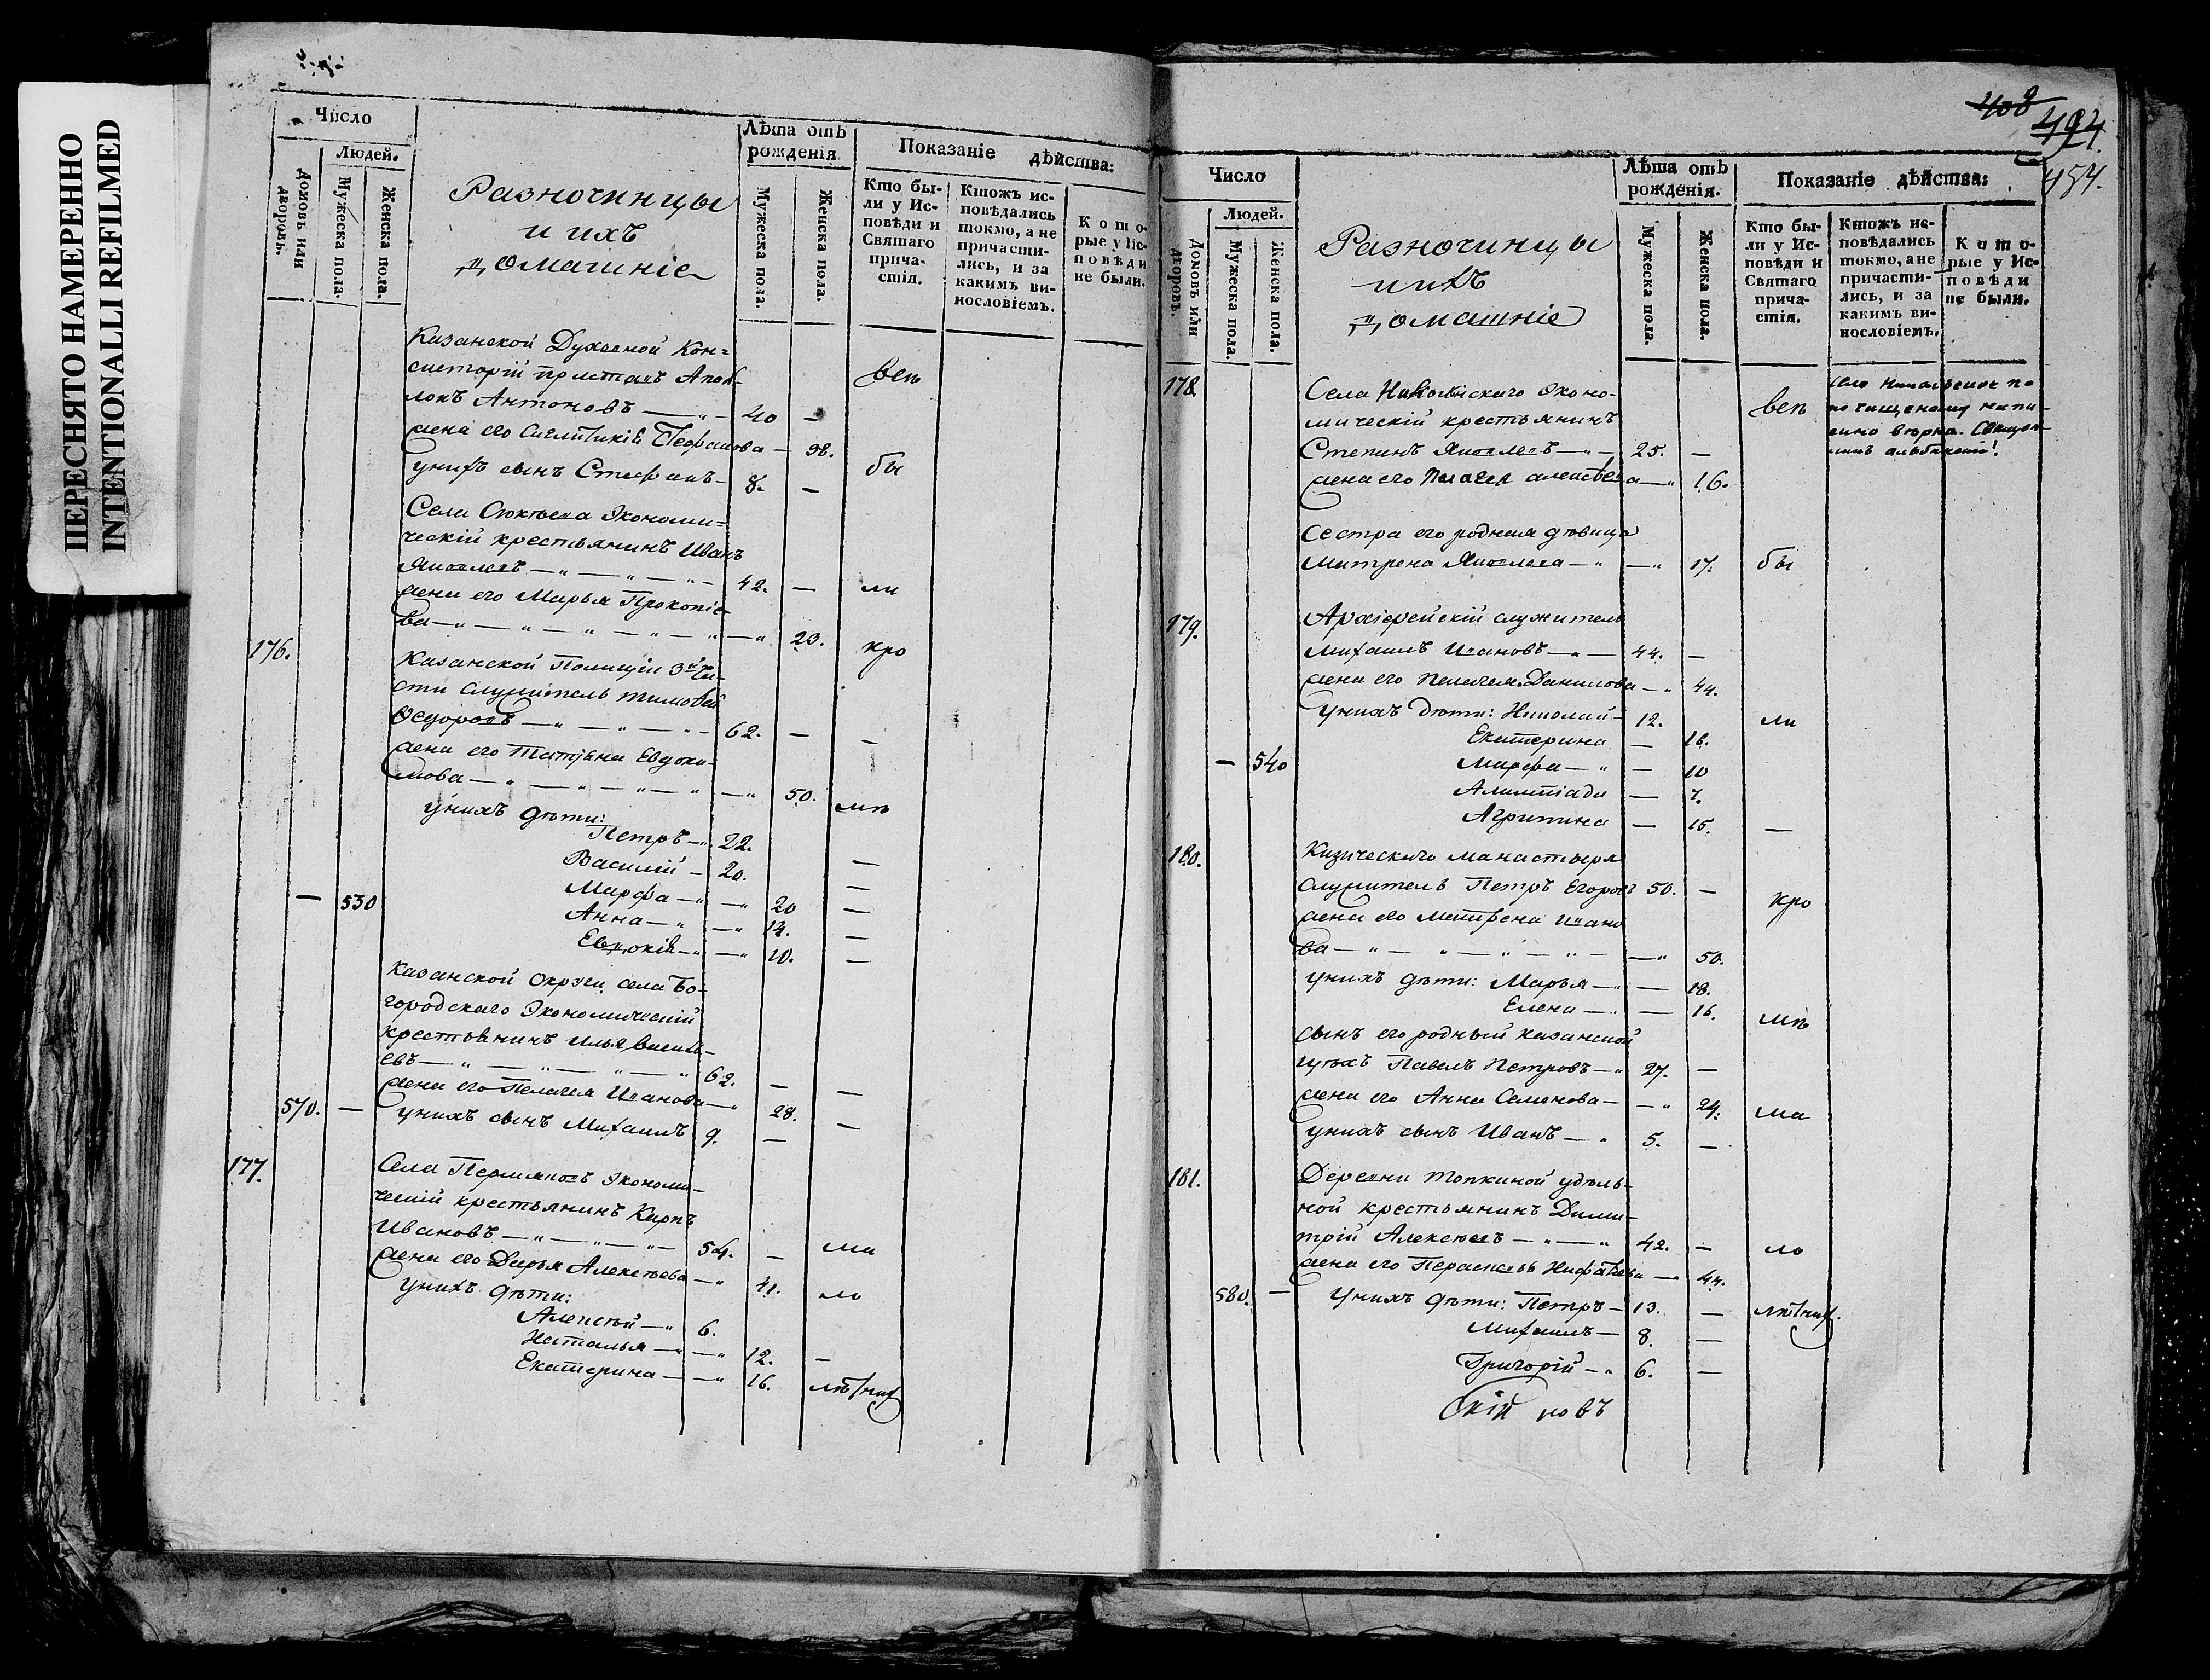 ПЕРЕСНЯТО НАМЕРЕННО
INTENTIONALLI REFILMED
Число
Людей.
Домовъ или дворовъ.
Мужеска пола.
Женска пола.
Разночинцы
и ихъ
домашніе
Лѣта отъ рожденія
Мужеска пола.
Женска пола.
Показаніе дѣйства:
Кто бы-
ли у Ис-
повѣди и
Святаго
прича-
стія.
Ктожъ ис-
повѣдались
токмо, а не
причасти-
лись, и за
какимъ ви-
нословіемъ.
Кото-
рые у Ис-
повѣди
не были.
Казанской Духовной Кон=
систоріи приставъ Апол-
лонъ Антоновъ — 40 —
жена его Стефанова — 38.
унихъ сынъ Стефанъ — 8. — бы
Села Сюкѣева Экономи=
ческій крестьянинъ Иванъ
Яковлевъ — 42. — ли
жена его Марья Прокопіе-
ва — 23. кро
176.
Казанской Полиціи 3й Ча-
сти служитель Тимофей
Ѳедоровъ — 62. — —
жена его Татіана Евдоки-
мова — 50.
унихъ дѣти:
Петръ — 22.
Василій — 20. —
Марфа — 20 —
— 530
Анна — 14. —
Евдокія — 10. —
Казанской Округи села Бо-
городскаго Экономическій
крестьянинъ Илья Василь-
евъ — 62. — —
жена его Пелагея Иванова — 28. —
570. — унихъ сынъ Михаилъ 9. —
177.
Села Экономи-
ческій крестьянинъ Карпъ
Ивановъ — 54. — ма
жена его Дарья Алексѣева — 41. ло
унихъ дѣти:
Алексѣй — 6.
Наталья — 12. —
Екатерина — 16.
408
494
454.
Число
Людей.
Домовъ или дворовъ.
Мужеска пола.
Женска пола.
Разночинцы
и ихъ
домашніе
Лѣта отъ рожденія.
Мужеска пола.
Женска пола.
Показаніе дѣйства:
Кто бы-
ли у Ис-
повѣди и
Святаго
прича-
стія.
Ктожъ ис-
повѣдались
токмо, а не
причасти-
лись, и за
какимъ ви-
нословіемъ.
Кото-
рые у Ис-
повѣди
не были.
178
Села Никольскаго Эконо-
мическій крестьянинъ
Степанъ Яковлевъ — 25. —
жена его Пелагея Алексѣева — 16.
сестра его родная дѣвица
Матрена Яковлева — 17. бы
179.
Архіерейскій служитель
Михаилъ Ивановъ — 44. —
жена его Пелагея Данилова — 44.
унихъ дѣти: Николай — 12. ли
Екатерина — 16.
— 540
Марфа — 10
Алимпіада — 7.
Агрипина — 15. —
180.
Кизическаго манастыря
служитель Петръ Егоровъ 50. — кро
жена его Матрена Ивано
ва — 50.
унихъ дѣти: Марья — 18.
Елена — 16.
сынъ его родный казанской
цѣхъ Павелъ Петровъ — 27. —
жена его Анна Семенова — 24. ма
унихъ сынъ Иванъ — 5. —
181.
Деревни Топкиной удѣль-
ной крестьянинъ Дими-
трій Алексѣевъ — 42. — ло
жена его — 44.
580. — унихъ дѣти: Петръ — 13. —
Михаилъ — 8. —
Григорій — 6. —